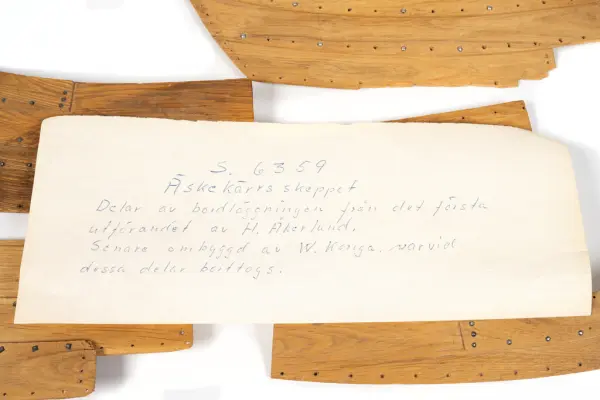 S. 6359
Äskekärrsskeppet
Delar av bordläggningen från det första
utförandet av H. Åkerlund.
Senare ombyggd av W. Konga, varvid
dessa delar borttogs.